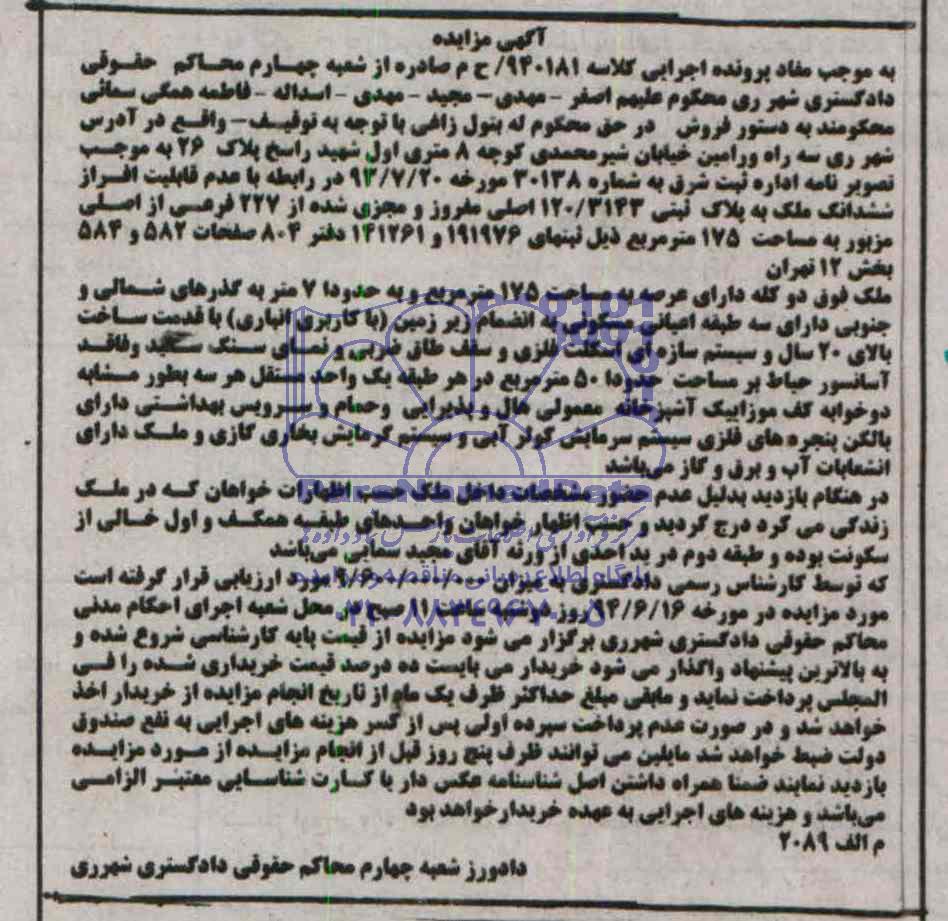 آگهی مزایده
به موجب مفاد پرونده اجرایی کلاسه ۹۴۰۱۸۱/ ح م صادره از شعبه چهارم محاکم حقوقی
دادگستری شهر ری محکوم علیهم اصغر - مهدی - مجید - مهدی - اسداله - فاطمه همگی سمائی
محکومند به دستور فروش در حق محکوم له بتول زاغی با توجه به توقیف - واقع در آدرس
شهر ری سه راه ورامین خیابان شیرمحمدی کوچه ۸ متری اول شهید راسخ پلاک ۲۶ به موجب
تصویر نامه اداره ثبت شرق به شماره ۳۰۱۳۸ مورخه ۹۳/۷/۲۰ در رابطه با عدم قابلیت افراز
ششدانگ ملک به پلاک ثبتی ۱۲۰/۳۱۴۳ اصلی مفروز و مجزی شده از ۲۲۷ فرعی از اصلی
مزبور به مساحت ۱۷۵ مترمربع ذیل ثبتهای ۱۹۱۹۷۶ و ۱۴۱۲۶۱ دفتر ۸۰۴ صفحات ۵۸۲ و ۵۸۴
بخش ۱۲ تهران
ملک فوق دو کله دارای عرصه به مساحت ۱۷۵ مترمربع و به حدودا ۷ متر به گذرهای شمالی و
جنوبی دارای سه طبقه اعیانی مسکونی به انضمام زیر زمین (با کاربری انباری) با قدمت ساخت
بالای ۲۰ سال و سیستم سازه ای اسکلت فلزی و سقف طاق ضربی و نمای سنگ سفید و فاقد
آسانسور حیاط بر مساحت حدودا ۵۰ مترمربع در هر طبقه یک واحد مستقل هر سه بطور مشابه
دوخوابه کف موزاییک آشپزخانه معمولی هال و پذیرایی وحمام و سرویس بهداشتی دارای
بالکن پنجره های فلزی سیستم سرمایش کولر آبی و سیستم گرمایش بخاری گازی و ملک دارای
انشعابات آب و برق و گاز می‌باشد
در هنگام بازدید بدلیل عدم حضور مشخصات داخل ملک حسب اظهارات خواهان که در ملک
زندگی می کرد درج گردید و حسب اظهار خواهان واحدهای طبقه همکف و اول خالی از
سکونت بوده و طبقه دوم در ید احدی از ورثه آقای مجید سمایی می‌باشد
که توسط کارشناس رسمی دادگستری به میزان مورد ارزیابی قرار گرفته است
مورد مزایده در مورخه ۹۴/۶/۱۶ روز دوشنبه ساعت ۱۱ صبح در محل شعبه اجرای احکام مدنی
محاکم حقوقی دادگستری شهرری برگزار می شود مزایده از قیمت پایه کارشناسی شروع شده و
به بالاترین پیشنهاد واگذار می شود خریدار می بایست ده درصد قیمت خریداری شده را فی
المجلس پرداخت نماید و مابقی مبلغ حداکثر ظرف یک ماه از تاریخ انجام مزایده از خریدار اخذ
خواهد شد و در صورت عدم پرداخت سپرده اولی پس از کسر هزینه های اجرایی به نفع صندوق
دولت ضبط خواهد شد مایلین می توانند ظرف پنج روز قبل از انجام مزایده از مورد مزایده
بازدید نمایند ضمنا همراه داشتن اصل شناسنامه عکس دار یا کارت شناسایی معتبر الزامی
می‌باشد و هزینه های اجرایی به عهده خریدارخواهد بود
م الف ۲۰۸۹
دادورز شعبه چهارم محاکم حقوقی دادگستری شهرری